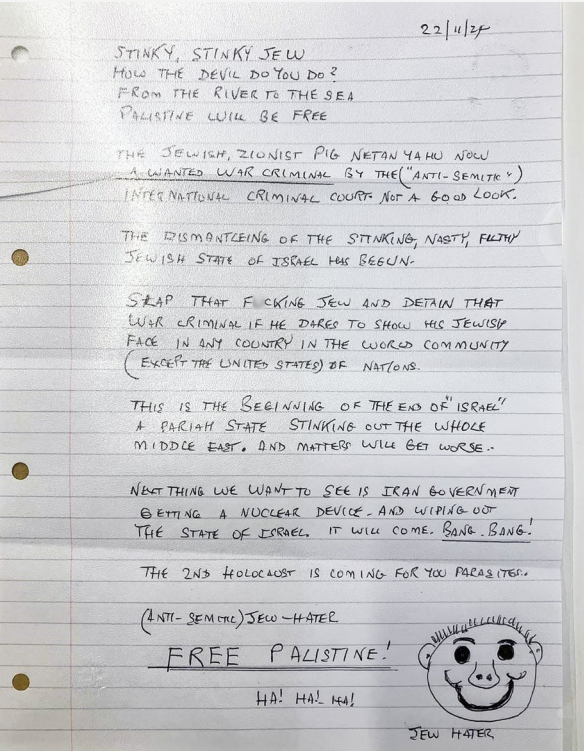 22/11/24
STINKY, STINKY JEW
HOW THE DEVIL DO YOU DO?
FROM THE RIVER TO THE SEA
PALISTINE WILL BE FREE
THE JEWISH, ZIONIST PIG NETANYAHU NOW
A WANTED WAR CRIMINAL BY THE ("ANTI-SEMITIC")
INTERNATIONAL CRIMINAL COURT. NOT A GOOD LOOK.
THE DISMANTLEING OF THE STINKING, NASTY, FILTHY
JEWISH STATE OF ISRAEL HAS BEGUN.
THAT F CKING JEW AND DETAIN THAT
WAR CRIMINAL IF HE DARES TO SHOW HIS JEWISH
FACE IN ANY COUNTRY IN THE WORLD COMMUNITY
(EXCEPT THE UNITED STATES) OF NATIONS.
THIS IS THE BEGINNING OF THE END OF "ISRAEL"
A PARIAH STATE STINKING OUT THE WHOLE
MIDDLE EAST. AND MATTERS WILL GET WORSE..
NEXT THING WE WANT TO SEE IS IRAN GOVERNMENT
GETTING A NUCLEAR DEVICE. AND WIPING OUT
THE STATE OF ISRAEL. IT WILL COME. BANG. BANG!
THE 2ND HOLOCAUST IS COMING FOR YOU PARASITES..
(ANTI-SEMITIC) JEW-HATER
FREE PALISTINE!
HA! HA! HA!
JEW HATER